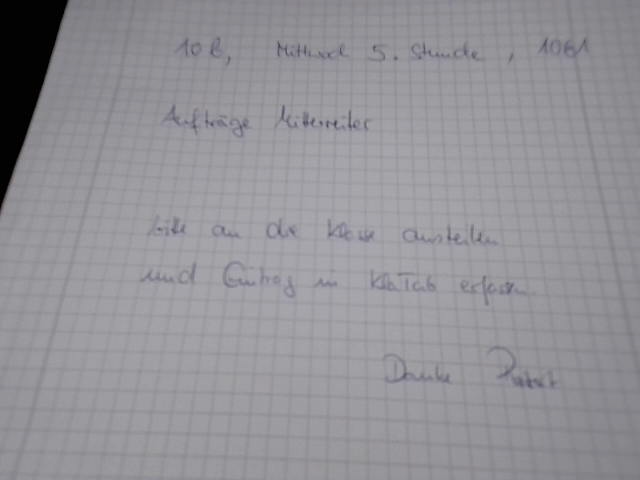 10b, Mittwoch 5. Stunde, 1061
Aufträge Mitterreiter
bitte an die Klasse austeilen
und Eintrag in KlaTab erfassen
Danke